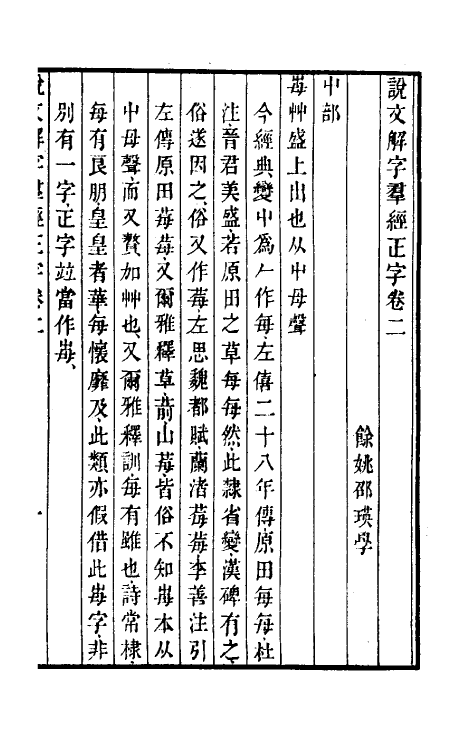 說文解字羣經正字卷二
餘姚邵瑛學
屮部
𡴕艸盛上出也从屮母聲
今經典變屮爲𠂉作每左僖二十八年傳原田每每杜
注晉君美盛若原田之草每每然此隸省變漢碑有之
俗遂因之俗又作莓左思魏都賦蘭渚莓莓李善注引
左傳原田莓莓又爾雅釋草葥山莓皆俗不知𡴕本从
屮母聲而又贅加艸也又爾雅釋訓每有雖也詩常棣
每有良朋皇皇者華每懷靡及此類亦假借此𡴕字非
別有一字正字竝當作𡴕
說文解字羣經正字卷二
一